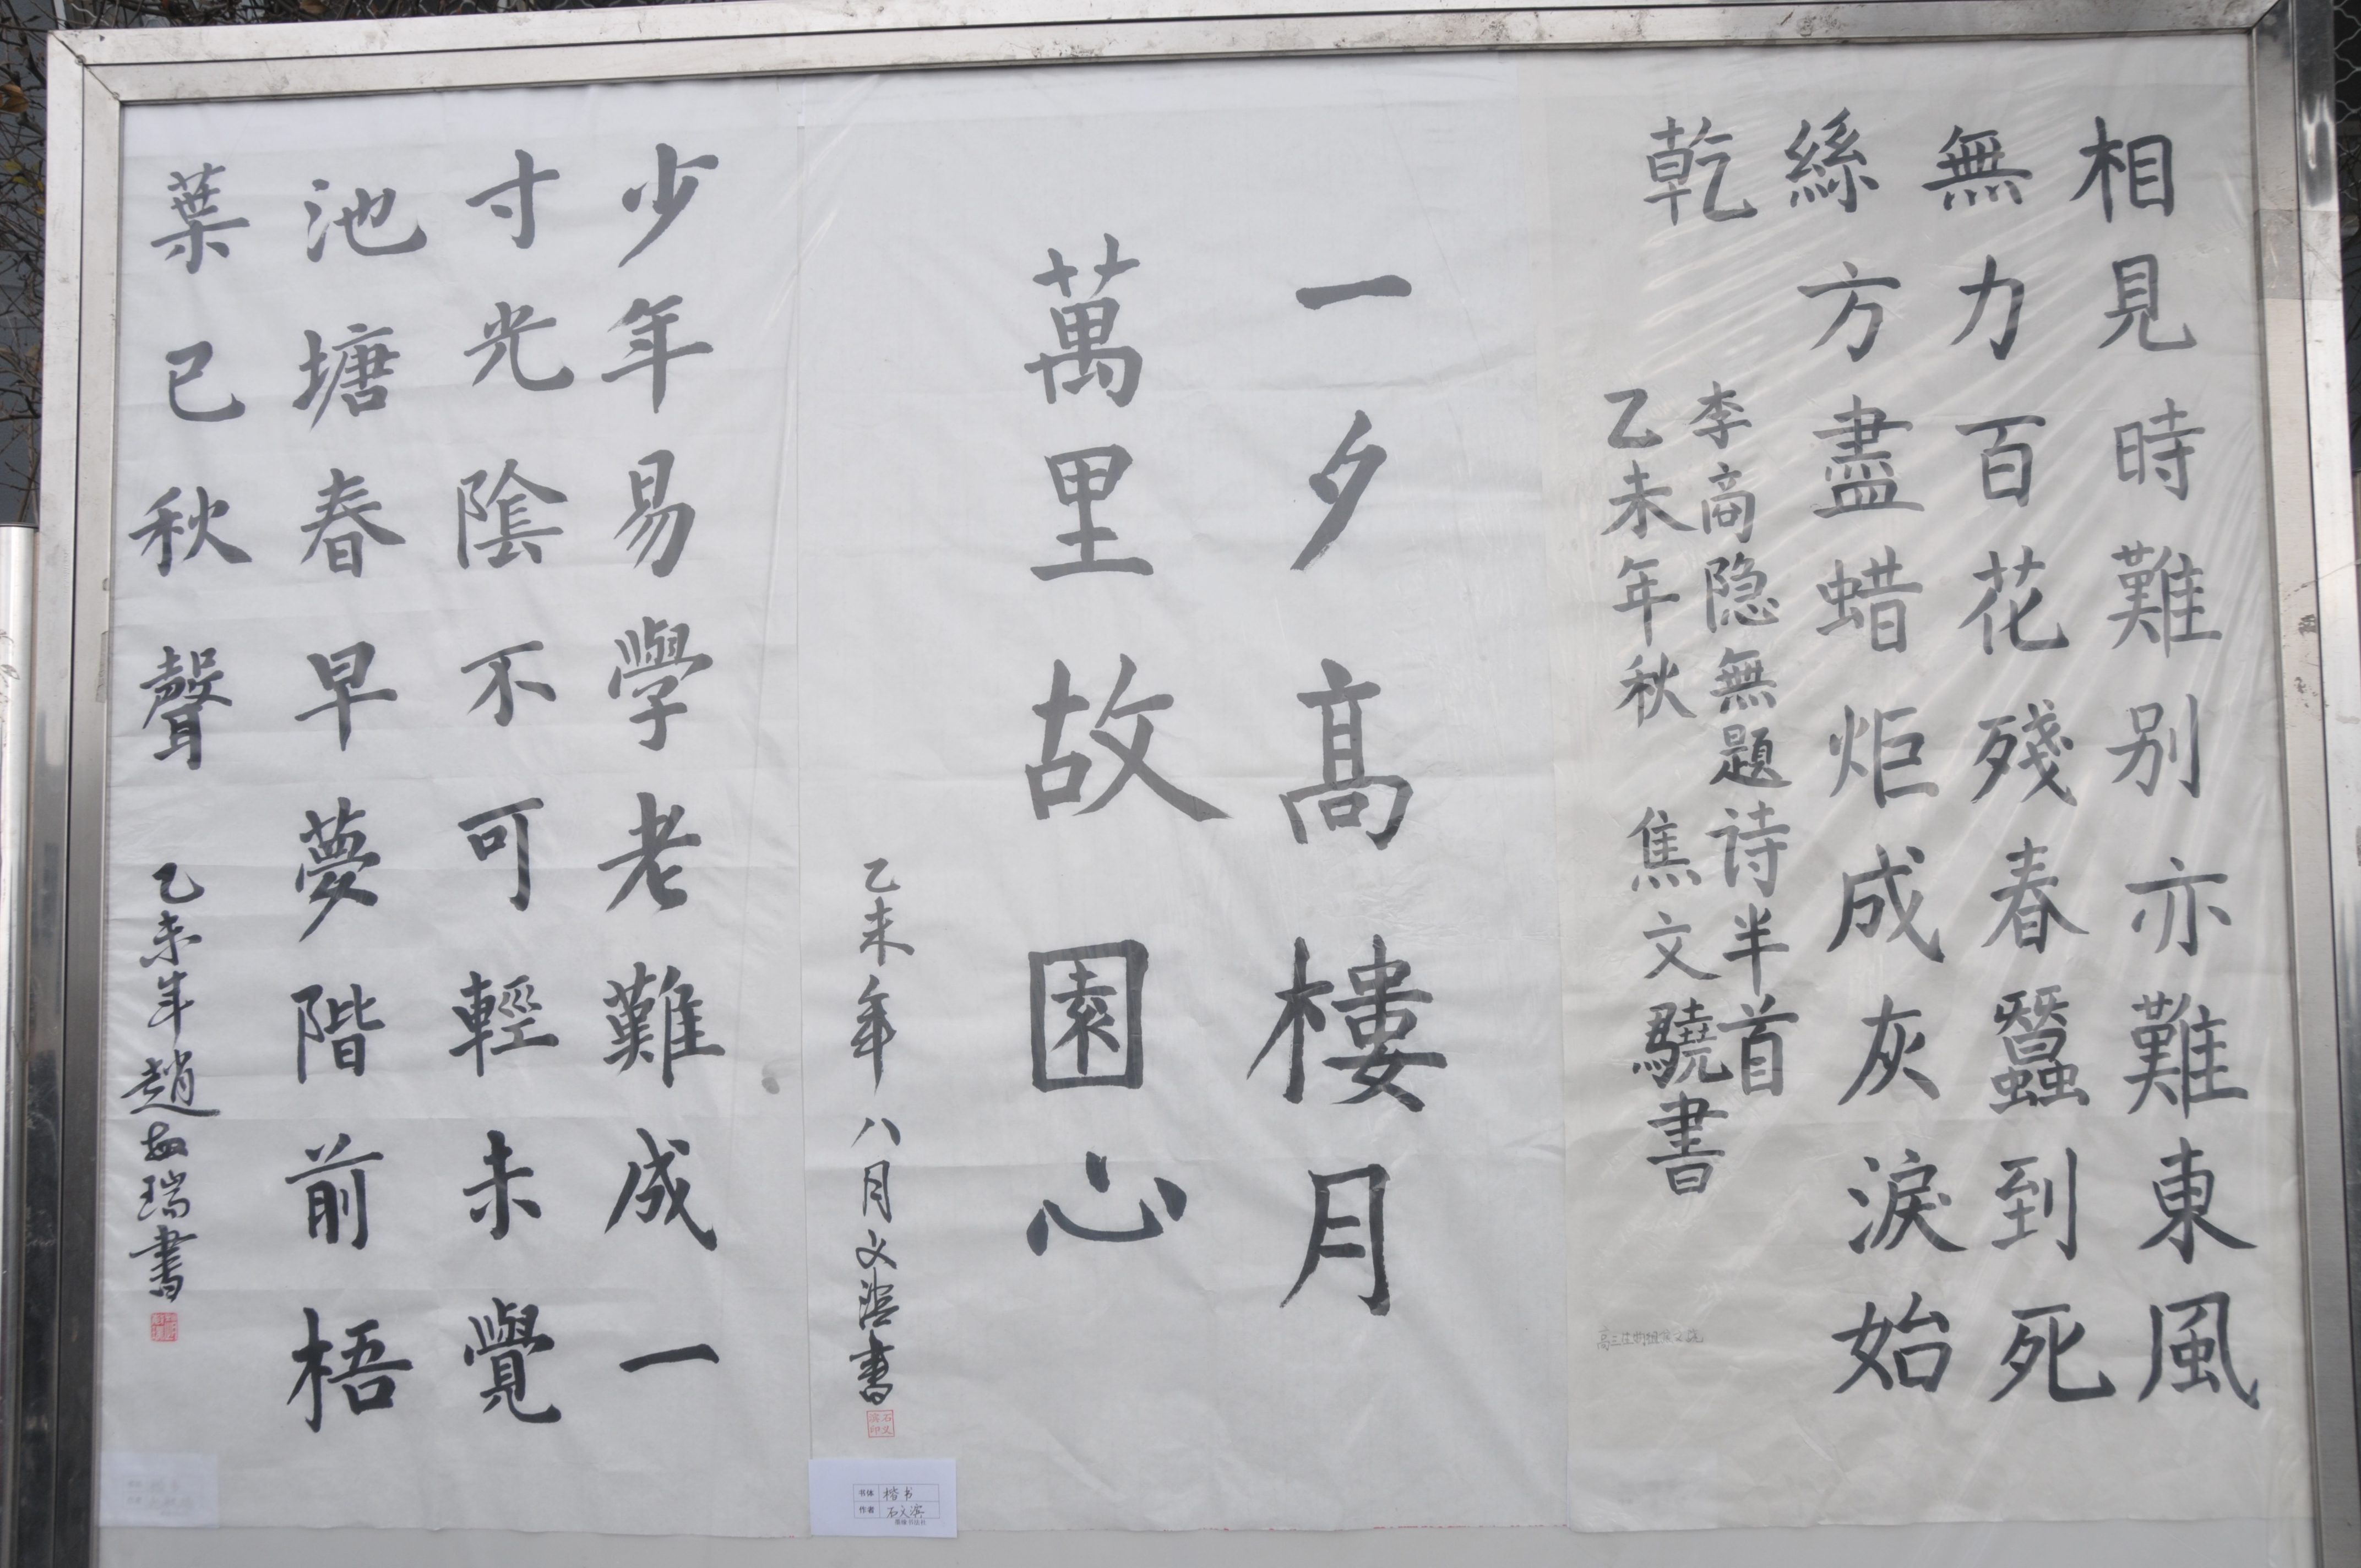 相見時難别亦難東風
無力百花殘春蠶到死
絲方盡蜡炬成灰淚始
乾
李商隐無題诗半首
乙未年秋 焦文驍書
一夕高樓月
萬里故園心
乙未年八月文濱書
石文滨印
书体 楷书
作者 石文滨
少年易學老難成一
寸光陰不可輕未覺
池塘春早夢階前梧
葉已秋聲
乙未年趙敏瑞書